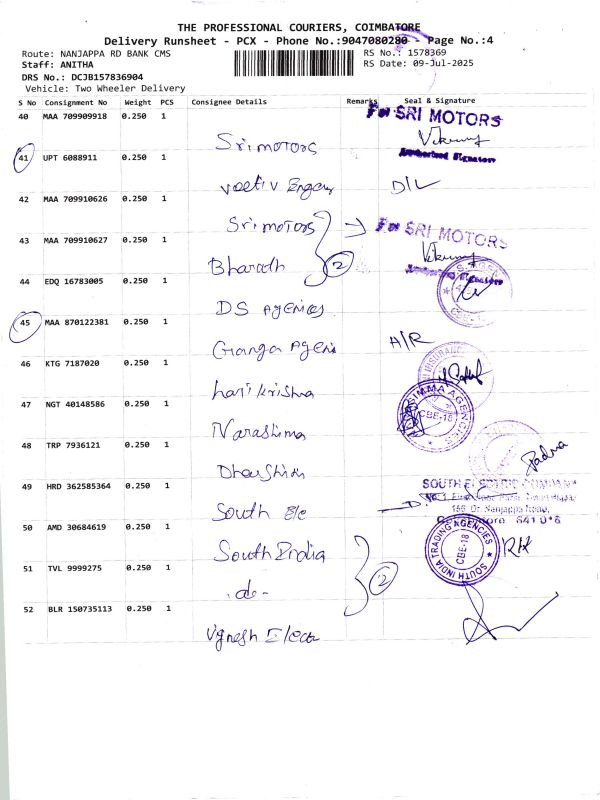 THE PROFESSIONAL COURIERS, COIMBATORE
Delivery Runsheet - PCX - Phone No.:9047080280 - Page No.:4
Route: NANJAPPA RD BANK CMS
RS No.: 1578369
Staff: ANITHA
RS Date: 09-Jul-2025
DRS No.: DCJB157836904
Vehicle: Two Wheeler Delivery
S No Consignment No Weight PCS Consignee Details Remarks Seal & Signature
40 MAA 709909918 0.250 1
For SRI MOTORS
Authorised Signatory
Sri motors
41 UPT 6088911 0.250 1
D/L
42 MAA 709910626 0.250 1
Sri motors
For SRI MOTORS
43 MAA 709910627 0.250 1
Bharath
2
Authorised Signatory
44 EDQ 16783005 0.250 1
DS Agencies
45 MAA 870122381 0.250 1
Ganga Agen
A/R
46 KTG 7187020 0.250 1
hari krishna
47 NGT 40148586 0.250 1
SIMMA AGENCIES
CBE-18
Narashima
48 TRP 7936121 0.250 1
Padma
49 HRD 362585364 0.250 1
SOUTH ELECTRIC COMPANY
South Ele
50 AMD 30684619 0.250 1
South India
SOUTH INDIA TRADING AGENCIES
CBE-18
RH
51 TVL 9999275 0.250 1
-do-
2
52 BLR 150735113 0.250 1
Vgnesh Elect